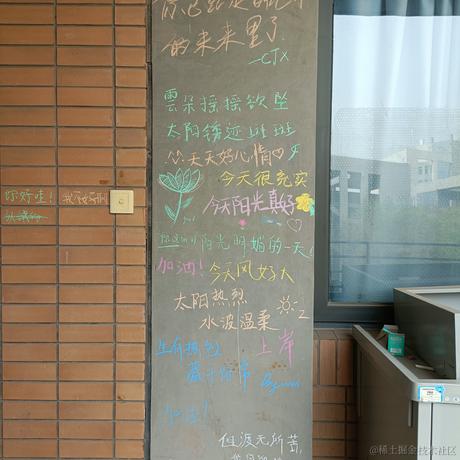 的未来里了
—CJX
雲朵摇摇欲坠
太阳锈迹斑斑
天天好心情♡
今天很充实
今天阳光真好
阳光明媚的一天!
加油!
今天风好大
太阳热烈
水波温柔
上岸
你好哇!
我不好啊
加油!
但渡无所苦,
@稀土掘金技术社区